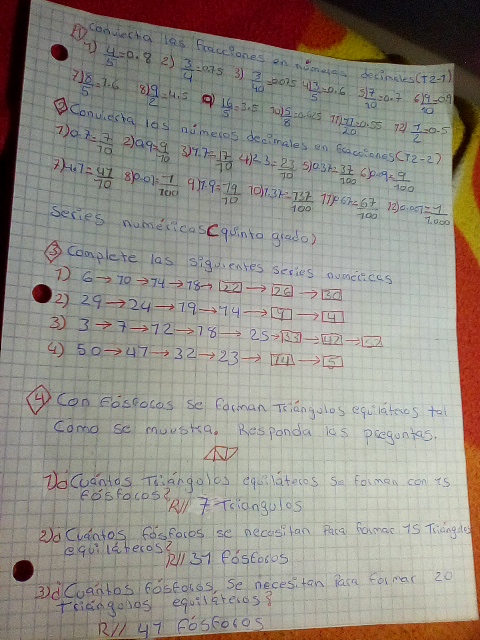 1 Convierta las fracciones en números decimales (T2-1)
1) 4/5=0.8 2) 3/4=0.75 3) 3/40=0.075 4) 3/5=0.6 5) 7/10=0.7 6) 9/10=0.9
7) 8/5=1.6 8) 9/2=4.5 9) 16/5=3.5 10) 5/8=0.625 11) 11/20=0.55 12) 1/2=0.5
2 Convierta los números decimales en fracciones (T2-2)
1) 0.7=7/10 2) 0.9=9/10 3) 1.7=17/10 4) 2.3=23/10 5) 0.37=37/100 6) 0.09=9/100
7) 4.7=47/10 8) 0.01=1/100 9) 7.9=79/10 10) 1.37=137/100 11) 0.67=67/100 12) 0.001=1/1.000
Series numéricas (quinto grado)
3 Complete las siguientes series numéricas
1) 6→10→14→18→22→26→30
2) 29→24→19→14→9→4
3) 3→7→12→18→25→33→42→52
4) 50→47→32→23→14→5
4 Con fósforos se forman Triángulos equiláteros tal
como se muestra. Responda las preguntas.
1) ¿Cuántos Triángulos equiláteros se forman con 15
fósforos?
R// 7 Triángulos
2) ¿Cuántos fósforos se necesitan para formar 15 Triángulos
equiláteros?
R// 31 fósforos
3) ¿Cuántos fósforos, se necesitan para formar 20
triángulos equiláteros?
R// 41 fósforos